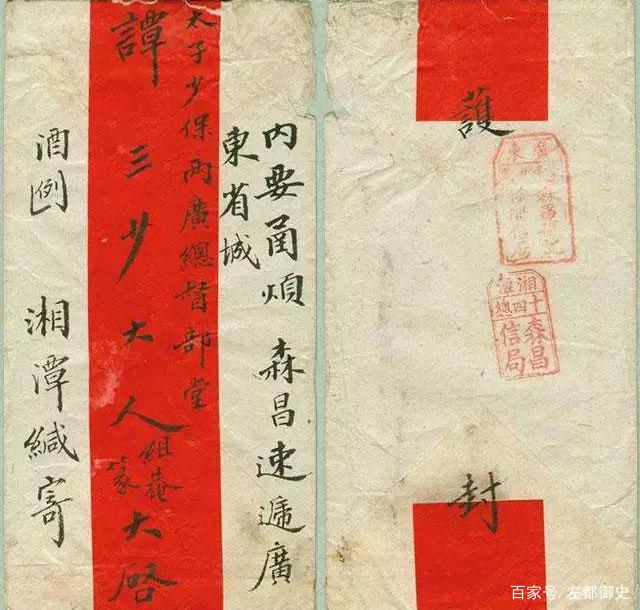 内要甬煩 森昌速遞廣
東省城
太子少保兩廣總督部堂
譚三少大人組菴篆大啓
酒例 湘潭緘寄
護
封
廣
東
湘十森昌
潭四信局
總
百家号/左都御史